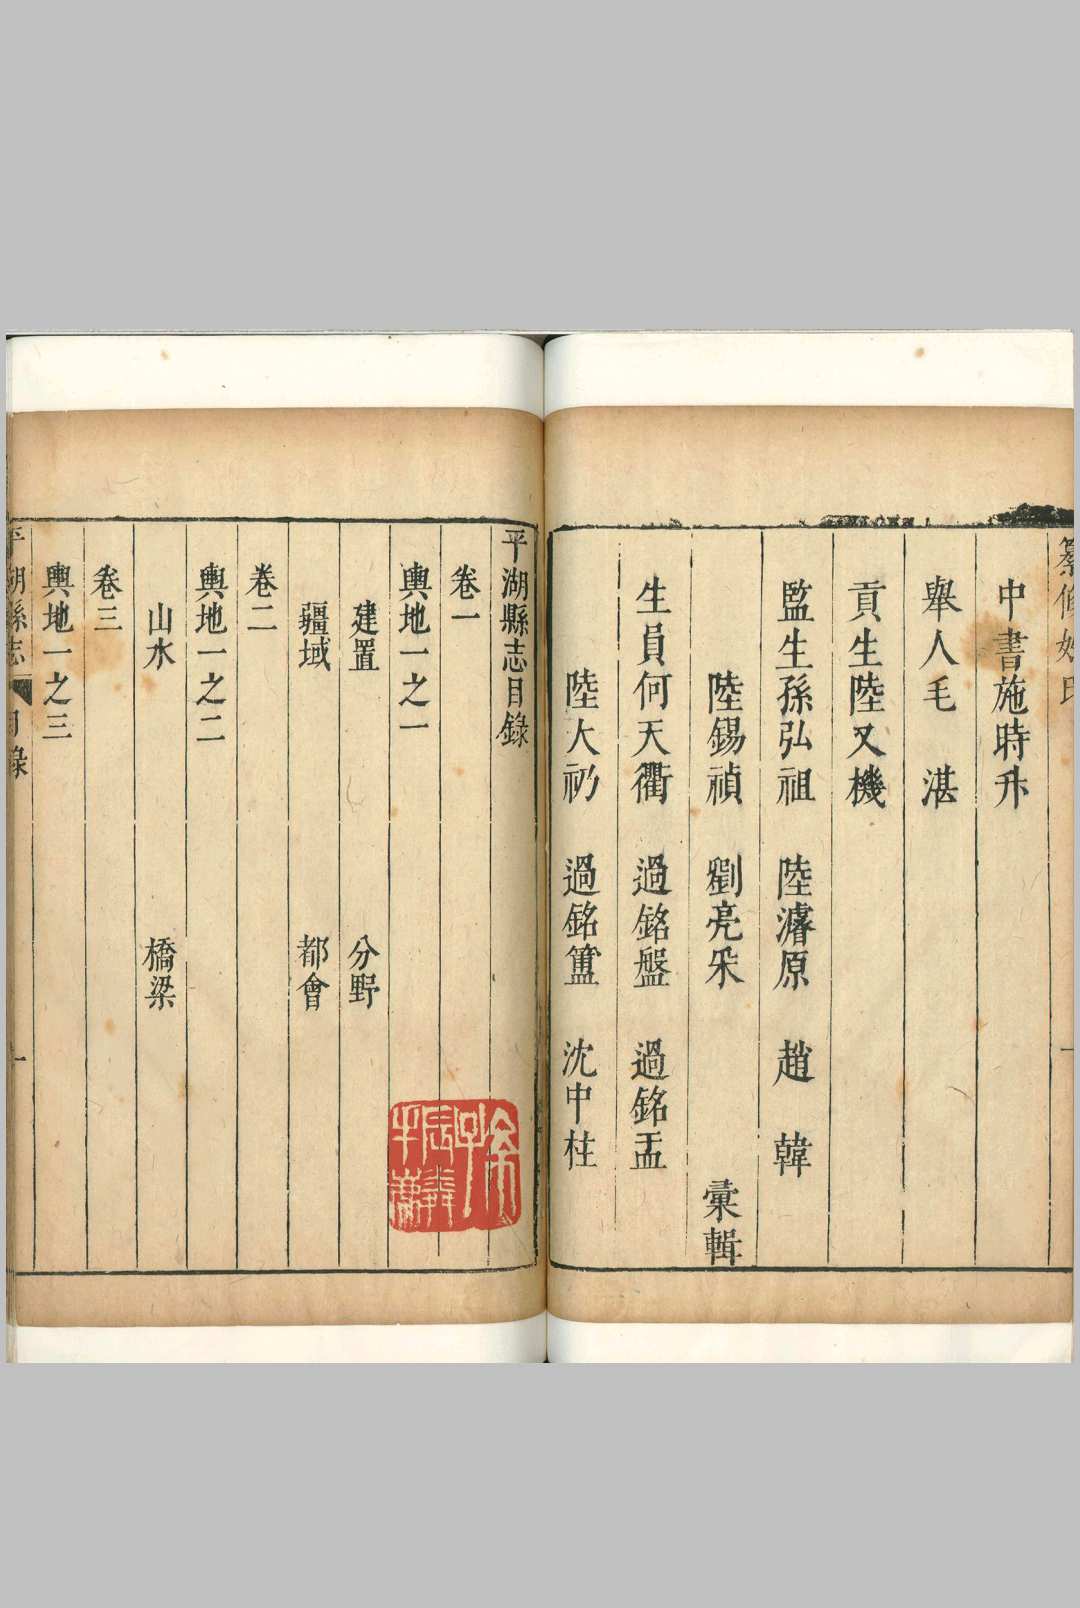 纂修姓氏
中書施時升
舉人毛　湛
貢生陸又機
監生孫弘祖　陸濬原　趙　韓
陸錫禎　劉亮采　彙輯
生員何天衢　過銘盤　過銘盂
陸大礽　過銘簠　沈中柱
一
平湖縣志目錄
卷一
輿地一之一
建置　分野
疆域　都會
卷二
輿地一之二
山水　橋梁
卷三
輿地一之三
平湖縣志　目錄　一